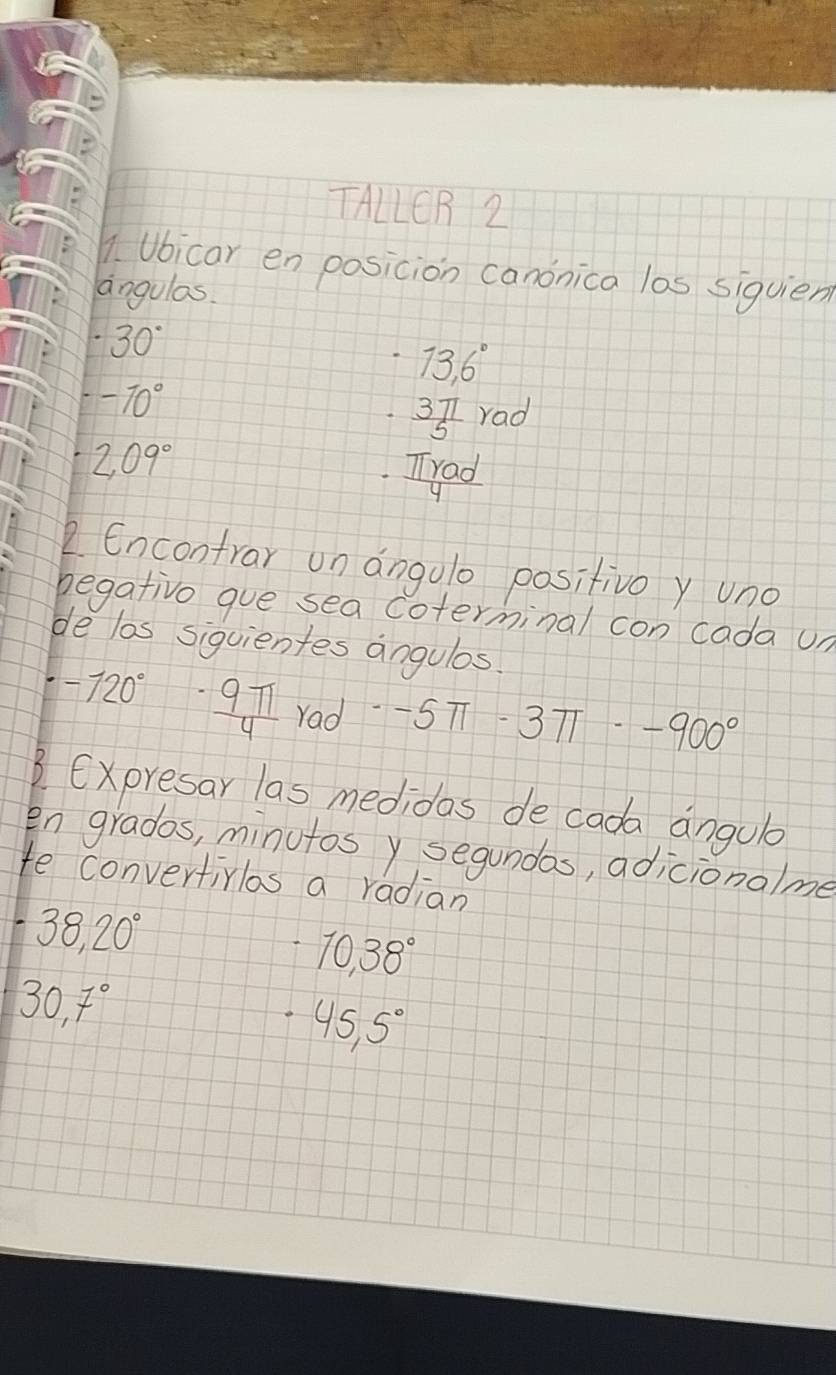 TALLER 2
1. Ubicar en posición canónica los siguient
ángulos.
·30° ·13,6°
·-10° ·3π/5 rad
·2,09° ·πrad/4
2. Encontrar un ángulo positivo y uno
negativo que sea coterminal con cada un
de los siguientes ángulos.
·-120° ·9π/4 rad ·-5π ·3π ·-900°
3. Expresar las medidas de cada ángulo
en grados, minutos y segundos, adicionalme
te convertirlos a radian
·38,20° ·10,38°
·30,7° ·45,5°